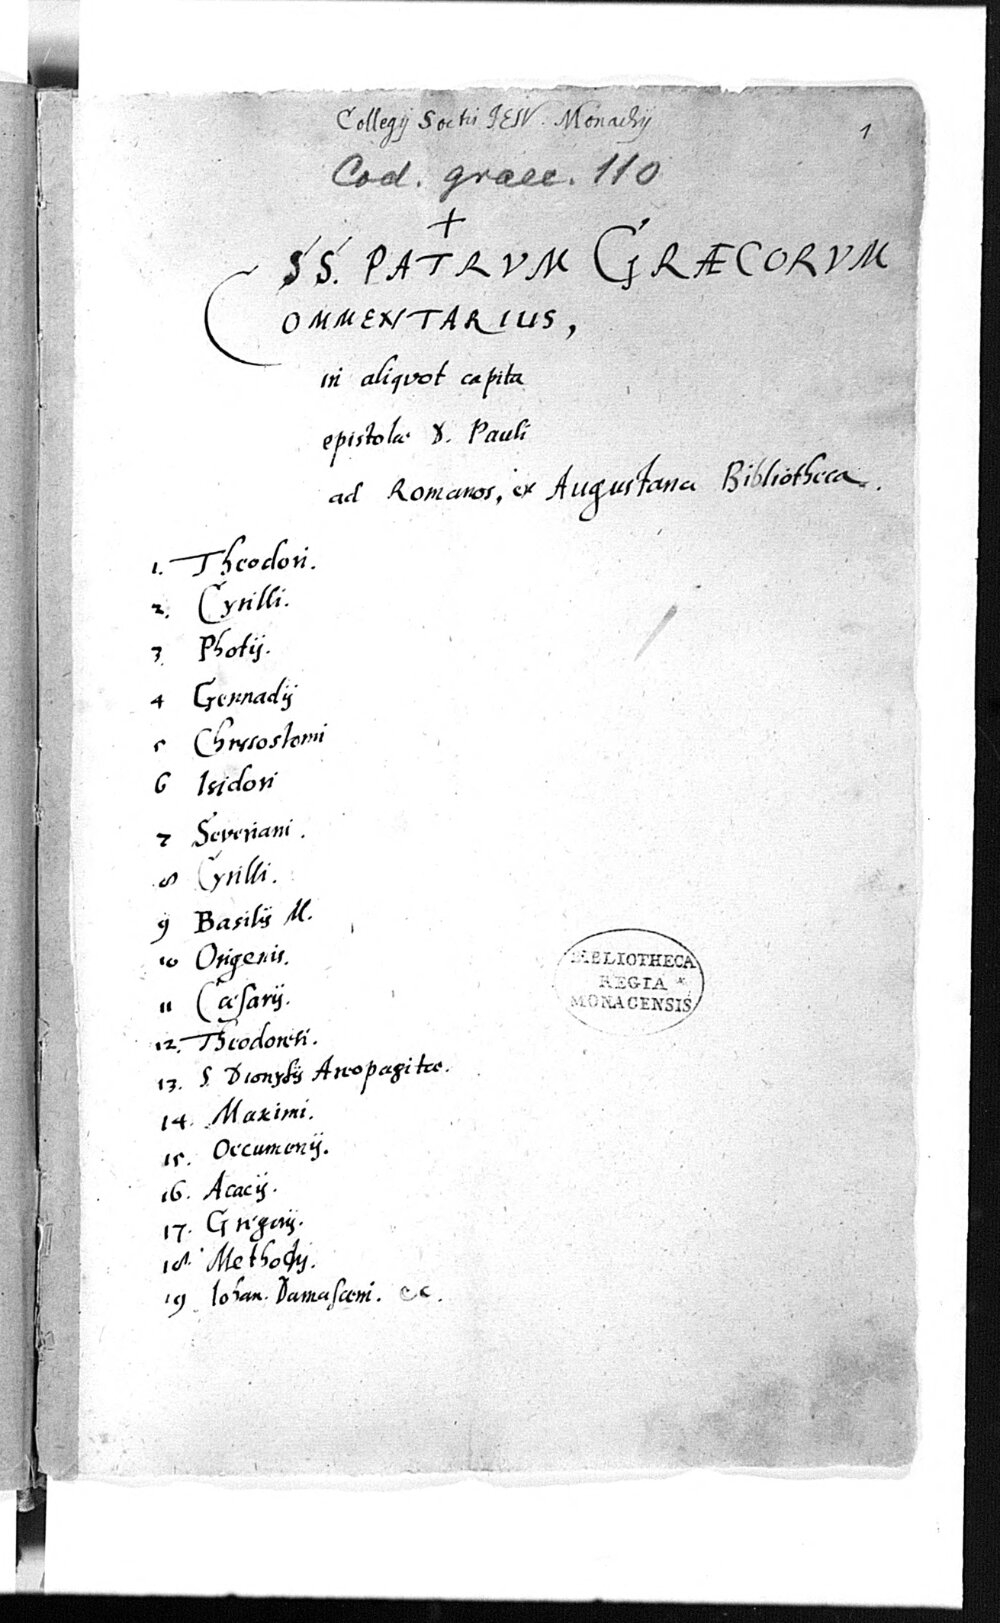 Collegij Soctis IESV. Monachij
1
Cod. graec. 110
+
SS. PATRVM GRÆCORVM
COMMENTARIUS,
in aliquot capita
epistolæ D. Pauli
ad Romanos, ex Augustana Bibliotheca.
1. Theodori.
2. Cyrilli.
3 Photij.
4 Gennadij
5 Chrysostomi
6 Isidori
7 Severiani.
8 Cyrilli.
9 Basilij M.
10 Origenis.
11 Cæsarij.
12. Theodoreti.
13. S. Dionysij Areopagitæ.
14. Maximi.
15. Oecumenij.
16. Acacij.
17. Gregorij.
18. Methodij.
19 Iohan. Damasceni. &c.
BIBLIOTHECA
REGIA
MONACENSIS